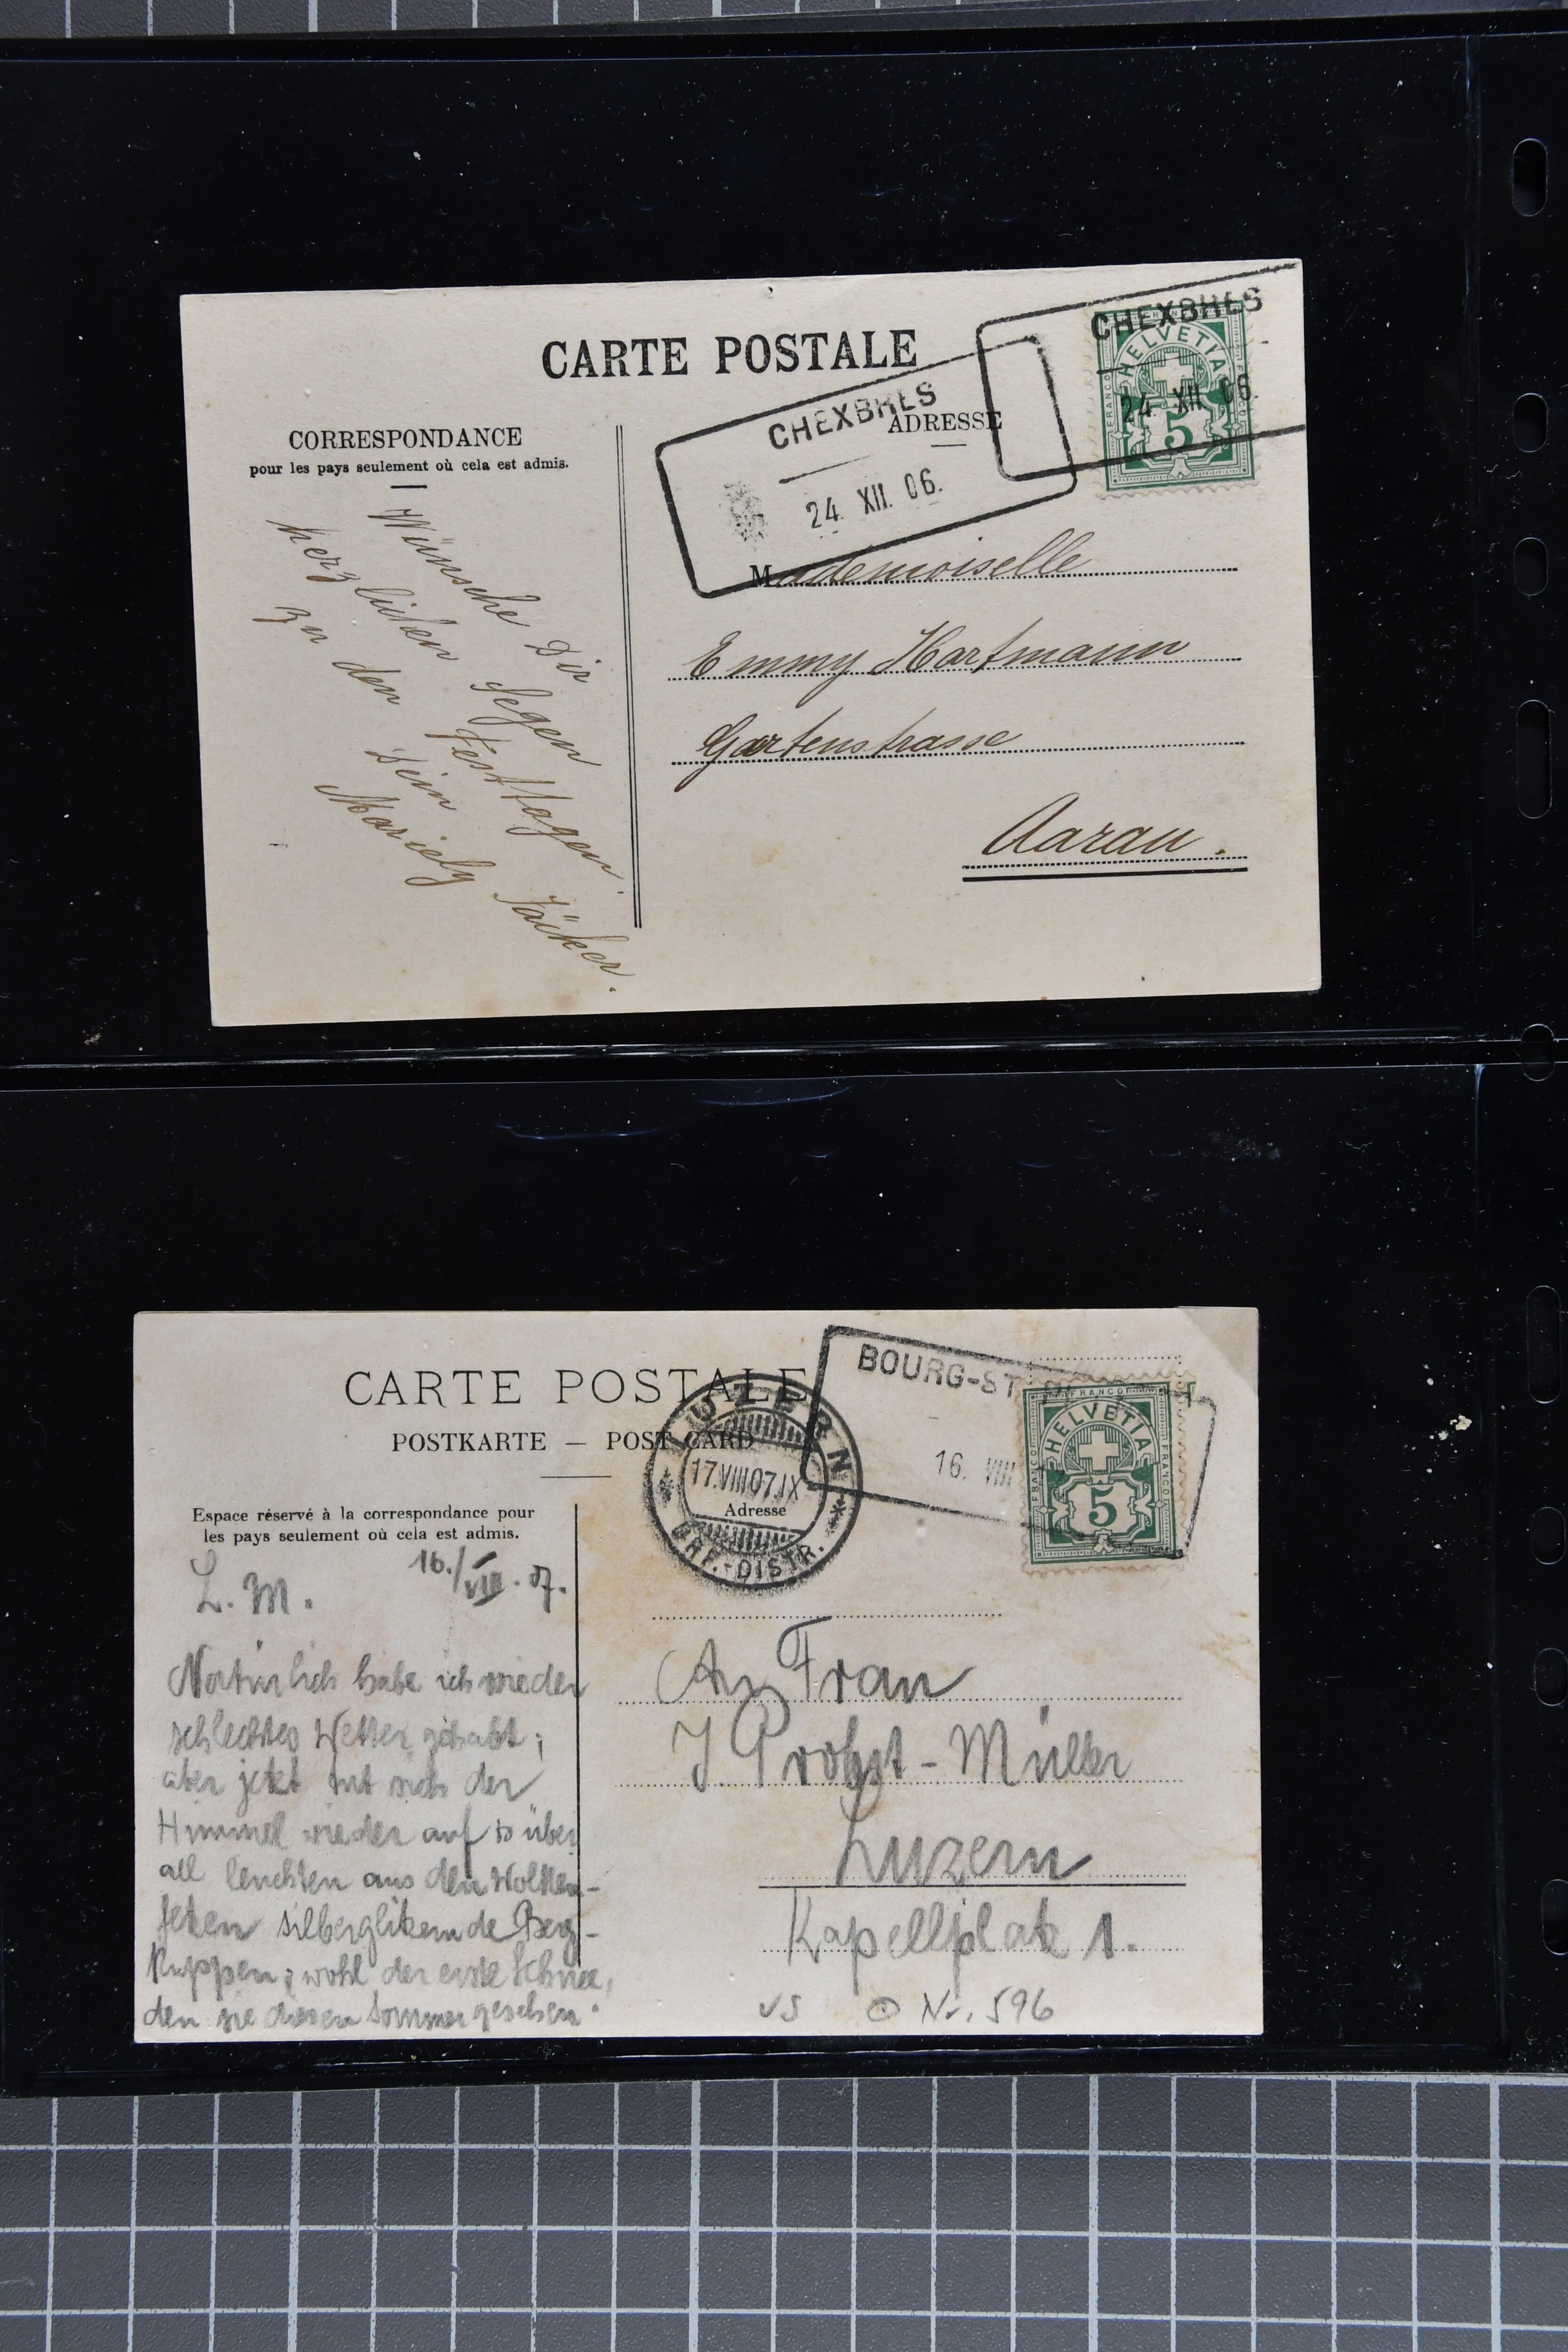 CARTE POSTALE
CORRESPONDANCE
pour les pays seulement où cela est admis.
ADRESSE
CHEXBRES
24. XII. 06.
CHEXBRES
24. XII. 06.
HELVETIA
FRANCO
5
Wünsche Dir
herzlichen Segen
zu den Festtagen.
Dein
Mariely Jäcker.
Mademoiselle
Emmy Hartmann
Gartenstrasse
Aarau.
CARTE POSTALE
POSTKARTE — POST CARD
Espace réservé à la correspondance pour
les pays seulement où cela est admis.
Adresse
LUZERN
17.VIII.07.IX
BRF.-DISTR.
BOURG-ST
16. VIII
FRANCO
HELVETIA
FRANCO
FRANCO
5
16./VIII.07.
L. M.
Natürlich habe ich wieder
schlechtes Wetter gehabt;
aber jetzt tut sich der
Himmel wieder auf & über
all leuchten aus den Wolken-
fetzen silberglitzernde Berg-
kuppen; wohl der erste Schnee,
den sie diesen Sommer gesehen.
An Frau
J. Probst-Müller
Luzern
Kapellplatz 1.
VS Nr. 596